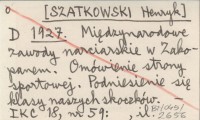 [SZATKOWSKI Henryk]
D 1927. Międzynarodowe
zawody narciarskie w Zako-
panem. Omówienie strony
sportowej. Podniesienie się
klasy naszych skoczków.
IKC 18, nr 59: